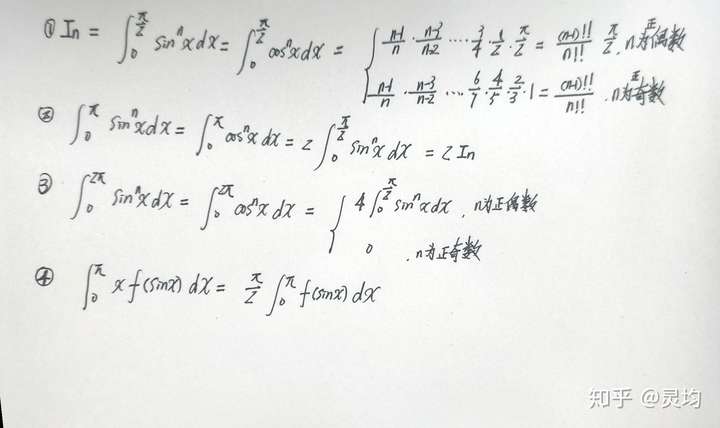 ① In = ∫₀^(π/2) sinⁿx dx = ∫₀^(π/2) cosⁿx dx = { (n-1)/n · (n-3)/(n-2) ··· 3/4 · 1/2 · π/2 = (n-1)!!/n!! · π/2 . n为正偶数
(n-1)/n · (n-3)/(n-2) ··· 6/7 · 4/5 · 2/3 · 1 = (n-1)!!/n!! . n为正奇数
② ∫₀^π sinⁿx dx = ∫₀^π cosⁿx dx = 2 ∫₀^(π/2) sinⁿx dx = 2 In
③ ∫₀^(2π) sinⁿx dx = ∫₀^(2π) cosⁿx dx = { 4 ∫₀^(π/2) sinⁿx dx . n为正偶数
0 . n为正奇数
④ ∫₀^π x f(sinx) dx = π/2 ∫₀^π f(sinx) dx
知乎 @灵均